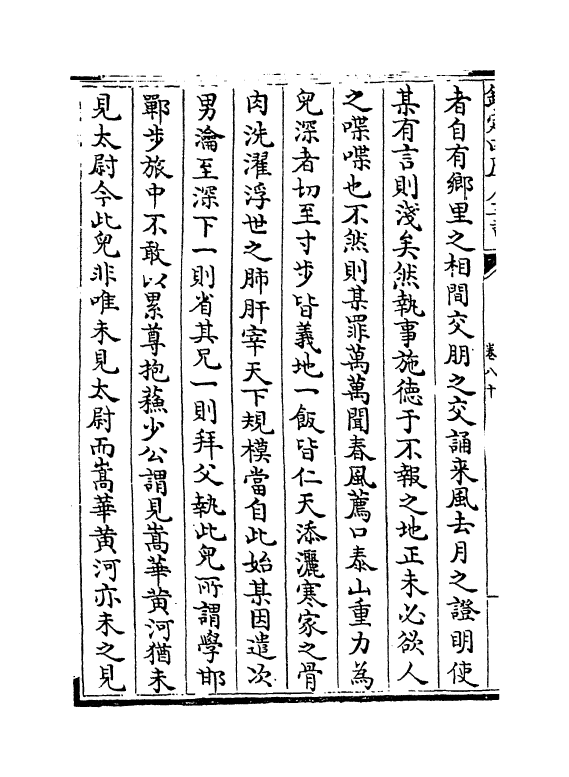 卷八十
者自有鄉里之相間交朋之交誦来風去月之證明使
某有言則淺矣然執事施德于不報之地正未必欲人
之喋喋也不然則某罪萬萬聞春風薦口泰山重力為
兒深者切至寸步皆義地一飯皆仁天添灑寒家之骨
肉洗濯浮世之肺肝宰天下規模當自此始某因遣次
男瀹至深下一則省其兄一則拜父執此兒所謂學邯
鄲步旅中不敢以累尊抱蘓少公謂見嵩華黄河猶未
見太尉今此兒非唯未見太尉而嵩華黄河亦未之見